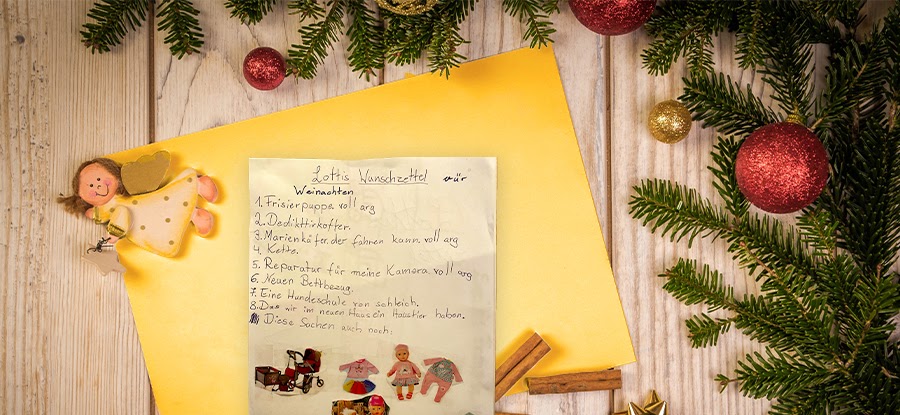 Lottis Wunschzettel für
Weinachten
1. Frisierpuppe. voll arg
2. Dedikttirkoffer.
3. Marienkäfer. der fahren kann. voll arg
4. Kette.
5. Reparatur für meine Kamera. voll arg
6. Neuen Bettbezug.
7. Eine Hundeschule von schleich.
8. Das wir im neuen Haus ein Haustier haben.
Diese Sachen auch noch: